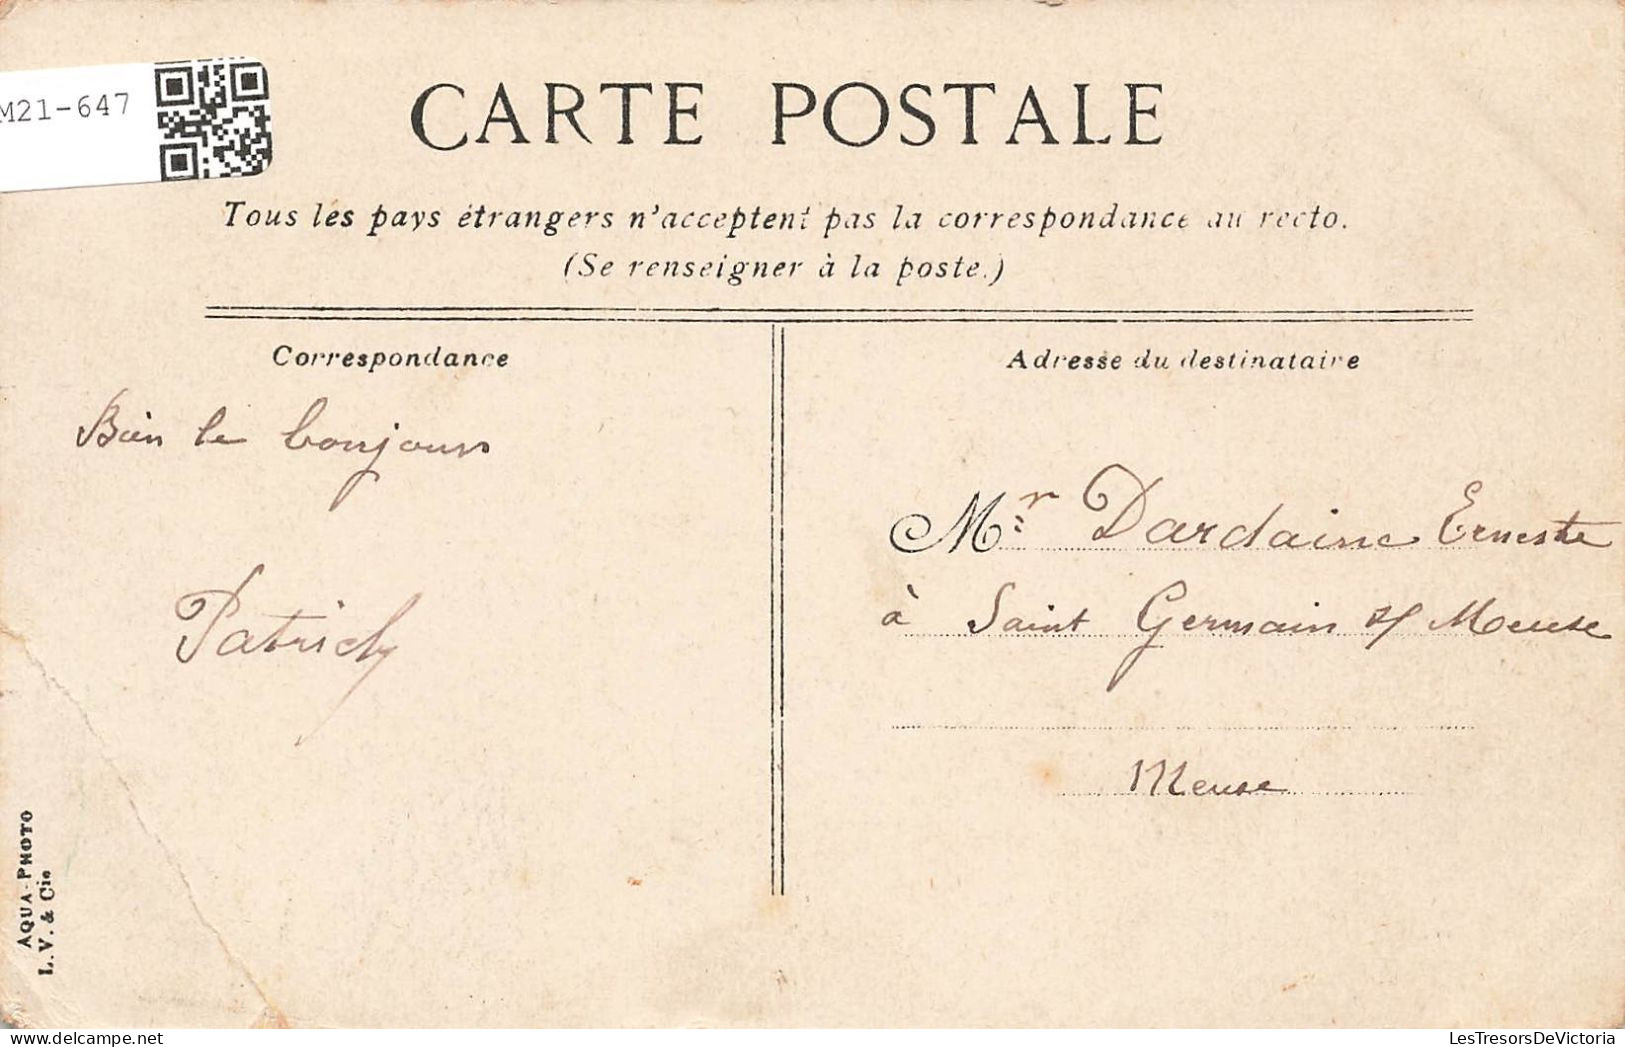 M21-647
CARTE POSTALE
Tous les pays étrangers n'acceptent pas la correspondance au recto.
(Se renseigner à la poste.)
Correspondance
Bien le bonjour
Patrich
Adresse du destinataire
Mr Dardaine Erneste
à Saint Germain s/ Meuse
Meuse
AQUA-PHOTO
L. V. & Cie
LesTresorsDeVictoria